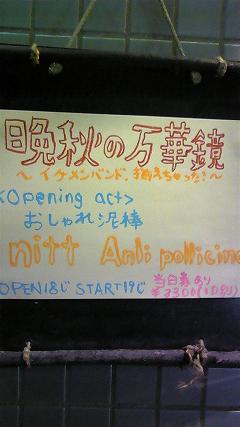 晩秋の万華鏡
～イケメンバンド、揃えちゃった！～
<Opening act>
おしゃれ泥棒
nitt Anli pollicino
OPEN18じ START19じ
当日券あり